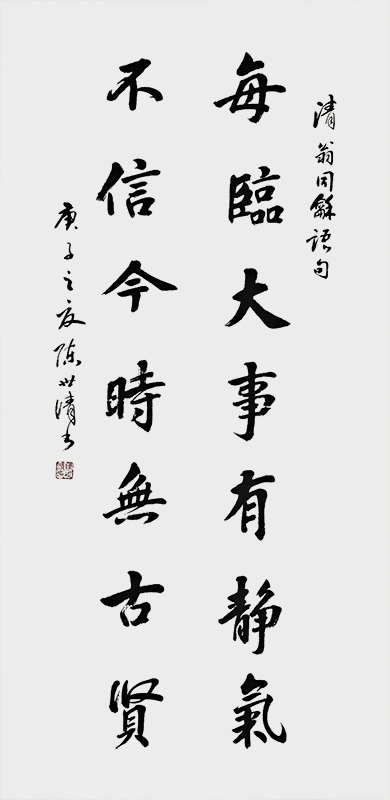 清翁同龢语句
每臨大事有静氣
不信今時無古賢
庚子之夏陈世清书